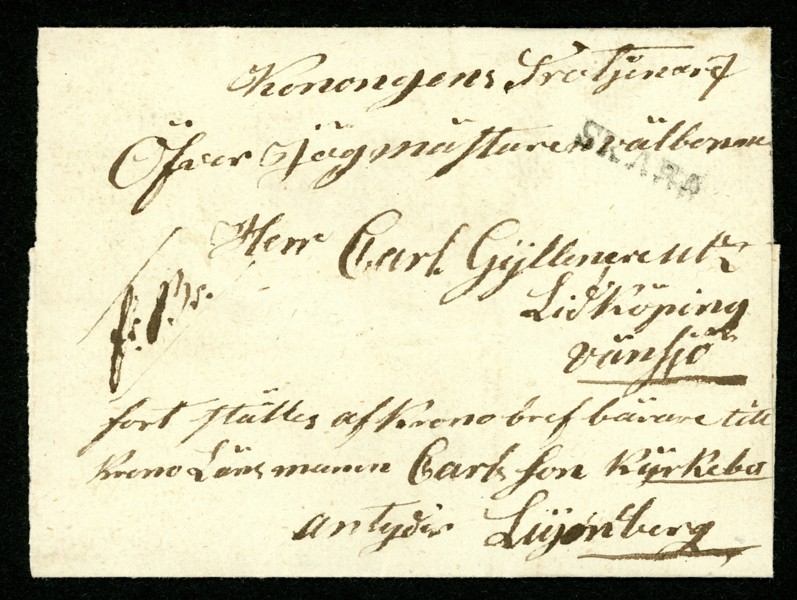 Konongens Trotjenare
Öfver Jägmästaren välborne
SKARA
Herr Carl Gyllencreutz
Lidköping
vänsjö
fort ställes af Krono bref bärare till
Krono Länsmannen Carlsson Kyrkebo
antyder